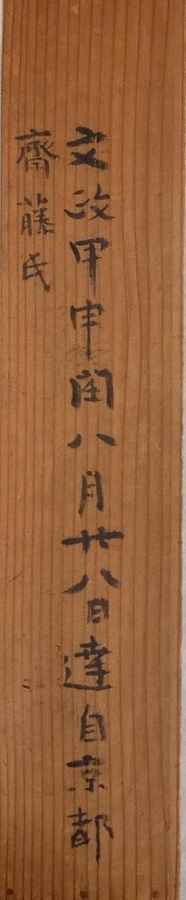 文政甲申閏八月廿八日達自京都
齋藤氏